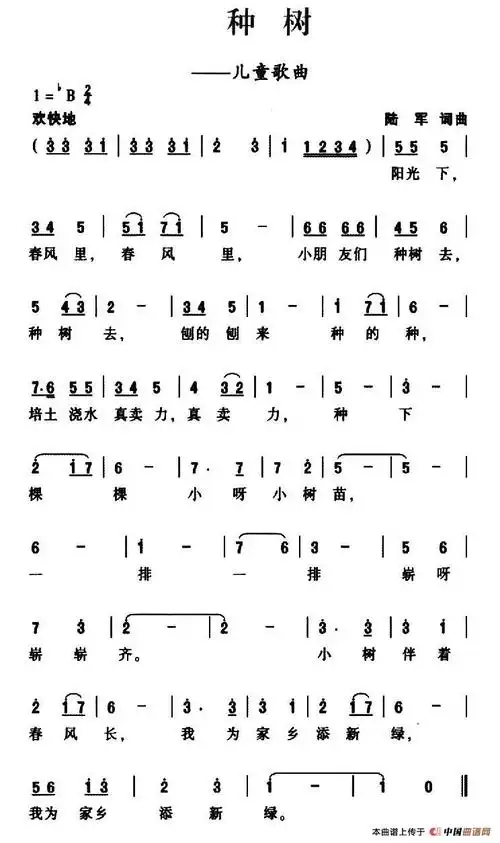 种 树
——儿童歌曲
1=♭B 2/4
欢快地 陆 军 词曲
( 3̇3̇ 3̇1̇ | 3̇3̇ 3̇1̇ | 2̇ 3̇ | 1̇ 1234 ) | 55 5 |
阳光 下，
34 5 | 51̇ 71̇ | 5 - | 66 66 | 45 6 |
春风 里， 春 风 里， 小朋 友们 种树 去，
5 43 | 2 - | 34 5 | 1̇ - | 1̇ 71̇ | 6 - |
种 树 去， 刨的 刨 来 种 的 种，
7·6 55 | 345 | 45 32 | 5 - | 3̇ - |
培土 浇水 真卖 力，真 卖 力， 种 下
2̇ 1̇7 | 6 - | 7· 7 | 7 2̇ | 5 - | 5 - |
棵 棵 小 呀 小 树 苗，
6 - | 1̇ - | 7 6 | 3 - | 5 6 |
一 排 一 排 崭 呀
7 3̇ | 2̇ - | 2̇ - | 3̇· 3̇ | 3̇ 1̇ |
崭 崭 齐。 小 树 伴 着
2̇ 1̇7 | 6 - | 3̇· 3̇ | 3̇ 3̇ | 2̇ 1̇7 | 6 - |
春 风 长， 我 为 家 乡 添 新 绿，
56 1̇3̇ | 3̇ 2̇ | 1̇ - | 1̇ 0 ‖
我为 家乡 添 新 绿。
本曲谱上传于 中国曲谱网